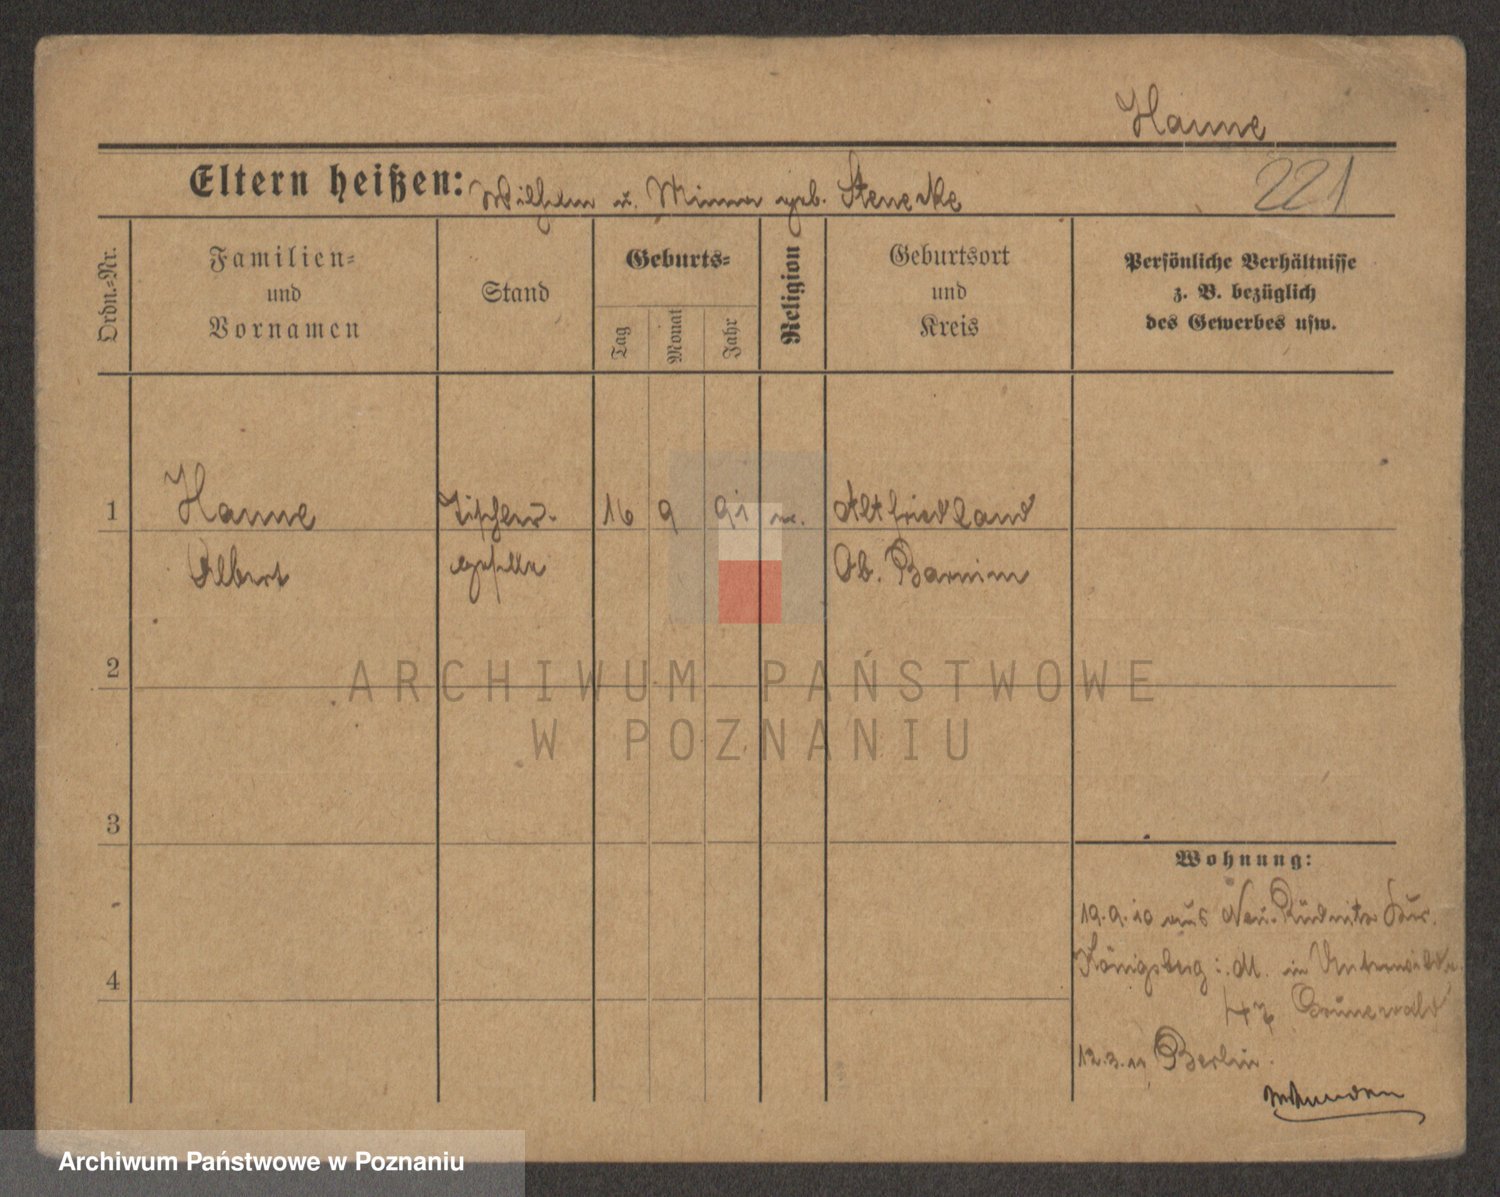 Hanne
Eltern heißen: Wilhelm u. Minna geb. Stenecke
221
Ordn.-Nr.
Familien-
und
Vornamen
Stand
Geburts-
Tag
Monat
Jahr
Religion
Geburtsort
und
Kreis
Persönliche Verhältnisse
z. B. bezüglich
des Gewerbes usw.
1
Hanne
Tischler-
16
9
91
Altfriedland
Albert
geselle
Ob. Barnim
2
ARCHIWUM PAŃSTWOWE
W POZNANIU
3
4
Wohnung:
19.9.10 aus Neu-Rüdnitz
Königsberg i. M. in
47 Grünewald
12.3.11 Berlin.
Archiwum Państwowe w Poznaniu